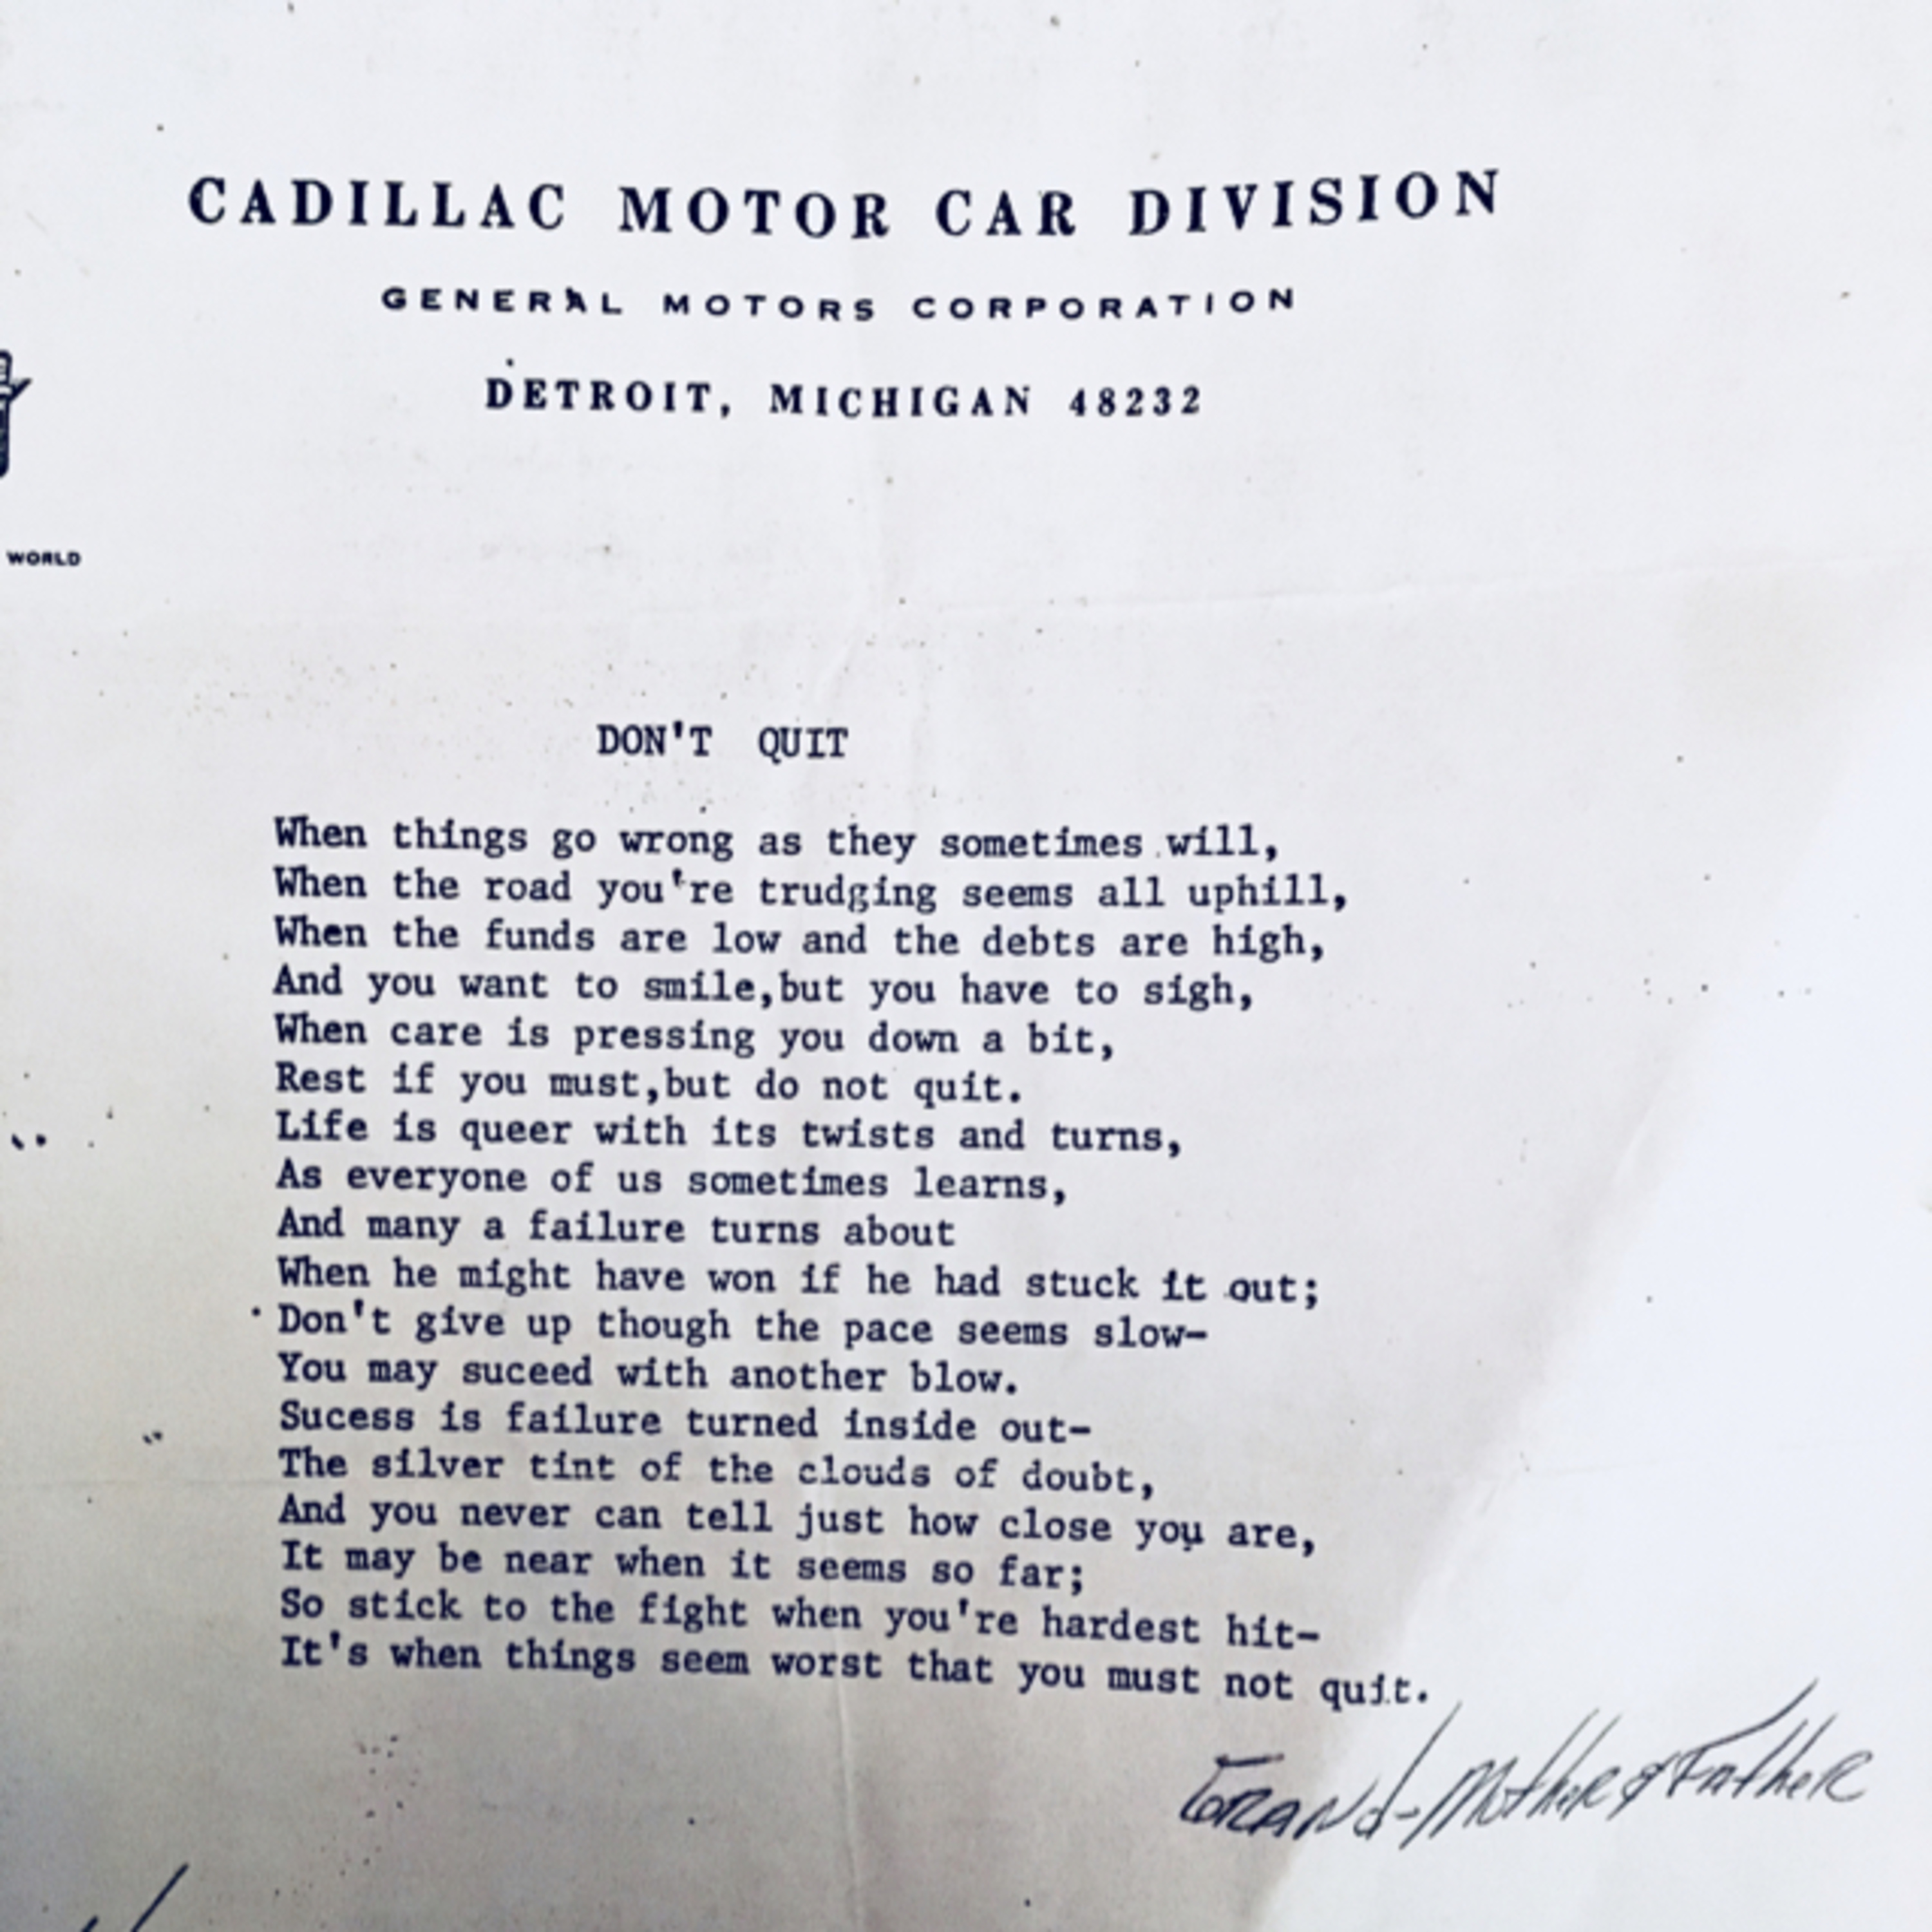 CADILLAC MOTOR CAR DIVISION
GENERAL MOTORS CORPORATION
DETROIT, MICHIGAN 48232
WORLD
DON'T QUIT
When things go wrong as they sometimes will,
When the road you're trudging seems all uphill,
When the funds are low and the debts are high,
And you want to smile,but you have to sigh,
When care is pressing you down a bit,
Rest if you must,but do not quit.
Life is queer with its twists and turns,
As everyone of us sometimes learns,
And many a failure turns about
When he might have won if he had stuck it out;
Don't give up though the pace seems slow-
You may suceed with another blow.
Sucess is failure turned inside out-
The silver tint of the clouds of doubt,
And you never can tell just how close you are,
It may be near when it seems so far;
So stick to the fight when you're hardest hit-
It's when things seem worst that you must not quit.
GRANd-MotheR & FatheR